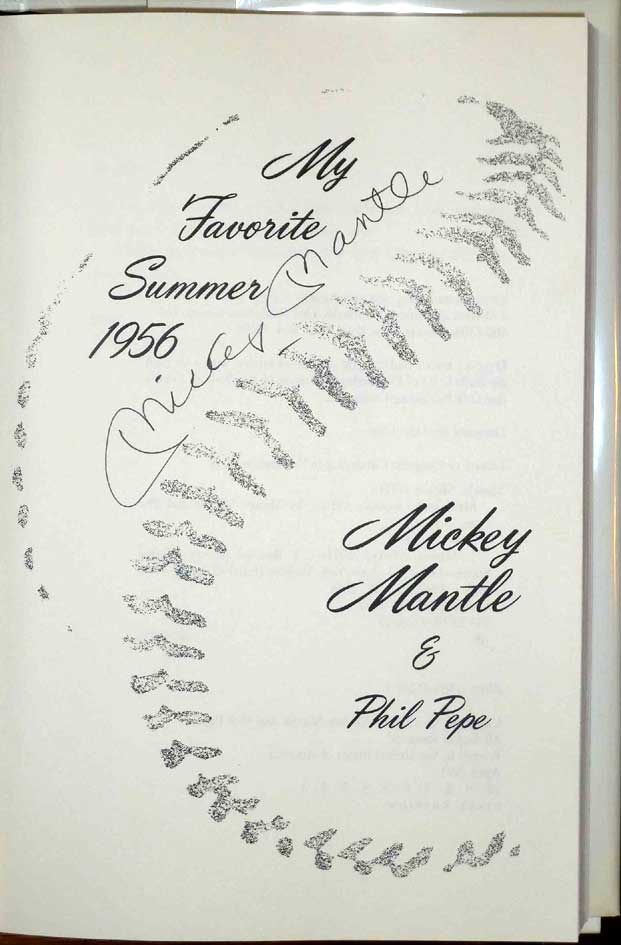 My
Favorite
Summer
1956
Mickey Mantle
Mickey
Mantle
&
Phil Pepe